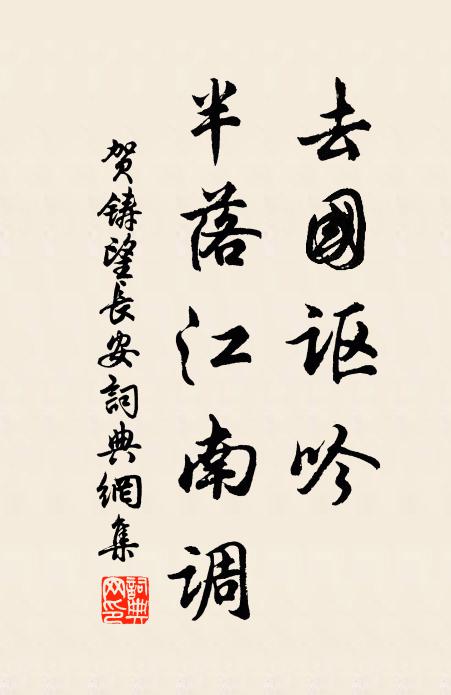 去國讴吟
半落江南调
贺鑄望長安詞典網集
詞典网印